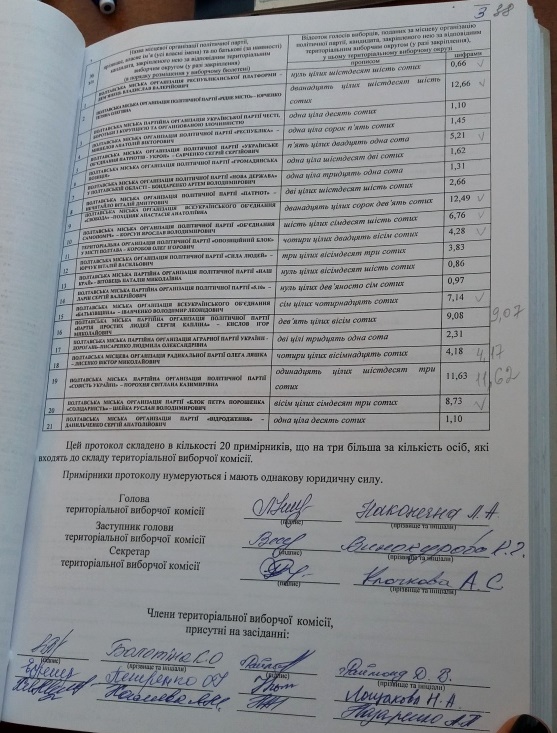 3 28
№ з/п
Назва місцевої організації політичної партії,
прізвище, власне ім'я (усі власні імена) та по батькові (за наявності)
кандидата, закріпленого нею за відповідним територіальним
виборчим округом (у разі закріплення)
(в порядку розміщення у виборчому бюлетені)
Відсоток голосів виборців, поданих за місцеву організацію
політичної партії, кандидата, закріпленого нею за відповідним
територіальним виборчим округом (у разі закріплення),
у цьому територіальному виборчому окрузі
прописом
цифрами
ПОЛТАВСЬКА МІСЬКА ОРГАНІЗАЦІЯ РЕСПУБЛІКАНСЬКОЇ ПЛАТФОРМИ –
ВЛАДИСЛАВ ВАЛЕРІЙОВИЧ
нуль цілих шістдесят шість сотих
0,66
ПОЛТАВСЬКА МІСЬКА ОРГАНІЗАЦІЯ ПОЛІТИЧНОЇ ПАРТІЇ «РІДНЕ МІСТО» - ЮРЧЕНКО
дванадцять цілих шістдесят шість
сотих
12,66
ПОЛТАВСЬКА МІСЬКА ПАРТІЙНА ОРГАНІЗАЦІЯ УКРАЇНСЬКОЇ ПАРТІЇ ЧЕСТІ,
БОРОТЬБИ З КОРУПЦІЄЮ ТА ОРГАНІЗОВАНОЮ ЗЛОЧИННІСТЮ
одна ціла десять сотих
1,10
ПОЛТАВСЬКА МІСЬКА ОРГАНІЗАЦІЯ ПОЛІТИЧНОЇ ПАРТІЇ «РЕСПУБЛІКА» -
АНАТОЛІЙ ВІКТОРОВИЧ
одна ціла сорок п'ять сотих
1,45
ПОЛТАВСЬКА МІСЬКА ОРГАНІЗАЦІЯ ПОЛІТИЧНОЇ ПАРТІЇ «УКРАЇНСЬКЕ
ОБ'ЄДНАННЯ ПАТРІОТІВ - УКРОП» - САВЧЕНКО СЕРГІЙ СЕРГІЙОВИЧ
п'ять цілих двадцять одна сота
5,21
ПОЛТАВСЬКА МІСЬКА ОРГАНІЗАЦІЯ ПОЛІТИЧНОЇ ПАРТІЇ «ГРОМАДЯНСЬКА
ПОЗИЦІЯ»
одна ціла шістдесят дві сотих
1,62
ПОЛТАВСЬКА МІСЬКА ОРГАНІЗАЦІЯ ПОЛІТИЧНОЇ ПАРТІЇ «НОВА ДЕРЖАВА»
У ПОЛТАВСЬКІЙ ОБЛАСТІ - БОНДАРЕНКО АРТЕМ ВОЛОДИМИРОВИЧ
одна ціла тридцять одна сота
1,31
ПОЛТАВСЬКА МІСЬКА ОРГАНІЗАЦІЯ ПОЛІТИЧНОЇ ПАРТІЇ «ПАТРІОТ» -
НЕЧИТАЙЛО ВІТАЛІЙ ДМИТРОВИЧ
дві цілих шістдесят шість сотих
2,66
9
ПОЛТАВСЬКА МІСЬКА ОРГАНІЗАЦІЯ ВСЕУКРАЇНСЬКОГО ОБ'ЄДНАННЯ
«СВОБОДА» - АНАСТАСІЯ АНАТОЛІЇВНА
дванадцять цілих сорок дев'ять сотих
12,49
10
ПОЛТАВСЬКА МІСЬКА ОРГАНІЗАЦІЯ ПОЛІТИЧНОЇ ПАРТІЇ «ОБ'ЄДНАННЯ
САМОПОМІЧ» - КОРСУН ЯРОСЛАВ ВОЛОДИМИРОВИЧ
шість цілих сімдесят шість сотих
6,76
11
ТЕРИТОРІАЛЬНА ОРГАНІЗАЦІЯ ПОЛІТИЧНОЇ ПАРТІЇ «ОПОЗИЦІЙНИЙ БЛОК»
У МІСТІ ПОЛТАВА - КОРОБОВ ОЛЕГ ІГОРОВИЧ
чотири цілих двадцять вісім сотих
4,28
12
ПОЛТАВСЬКА МІСЬКА ОРГАНІЗАЦІЯ ПОЛІТИЧНОЇ ПАРТІЇ «СИЛА ЛЮДЕЙ» -
ЮРЧУК ВІТАЛІЙ ВАСИЛЬОВИЧ
три цілих вісімдесят три сотих
3,83
13
ПОЛТАВСЬКА МІСЬКА ПАРТІЙНА ОРГАНІЗАЦІЯ ПОЛІТИЧНОЇ ПАРТІЇ «НАШ
КРАЙ» - ВІТОВЕЦЬ НАТАЛІЯ МИКОЛАЇВНА
нуль цілих вісімдесят шість сотих
0,86
14
ПОЛТАВСЬКА МІСЬКА ПАРТІЙНА ОРГАНІЗАЦІЯ ПОЛІТИЧНОЇ ПАРТІЇ «5.10» -
ЛАРІН СЕРГІЙ ВАЛЕРІЙОВИЧ
нуль цілих дев'яносто сім сотих
0,97
15
ПОЛТАВСЬКА МІСЬКА ОРГАНІЗАЦІЯ ВСЕУКРАЇНСЬКОГО ОБ'ЄДНАННЯ
«БАТЬКІВЩИНА» - ІВАНЧЕНКО ВОЛОДИМИР ЛЕОНІДОВИЧ
сім цілих чотирнадцять сотих
7,14
16
ПОЛТАВСЬКА МІСЬКА ПАРТІЙНА ОРГАНІЗАЦІЯ ПОЛІТИЧНОЇ ПАРТІЇ
«ПАРТІЯ ПРОСТИХ ЛЮДЕЙ СЕРГІЯ КАПЛІНА» - КИСЛОВ ІГОР
МИКОЛАЙОВИЧ
дев'ять цілих вісім сотих
9,08
9,07
17
ПОЛТАВСЬКА МІСЬКА ОРГАНІЗАЦІЯ АГРАРНОЇ ПАРТІЇ УКРАЇНИ -
ДОРОГАНЬ-ПИСАРЕНКО ЛЮДМИЛА ОЛЕКСАНДРІВНА
дві цілі тридцять одна сота
2,31
18
ПОЛТАВСЬКА МІСЦЕВА ОРГАНІЗАЦІЯ РАДИКАЛЬНОЇ ПАРТІЇ ОЛЕГА ЛЯШКА
- ЛИСЕНКО ВІКТОР МИКОЛАЙОВИЧ
чотири цілих вісімнадцять сотих
4,18
4,17
19
ПОЛТАВСЬКА МІСЬКА ПАРТІЙНА ОРГАНІЗАЦІЯ ПОЛІТИЧНОЇ ПАРТІЇ
«СОВІСТЬ УКРАЇНИ» - ПОРОХНЯ СВІТЛАНА КАЗИМИРІВНА
одинадцять цілих шістдесят три
сотих
11,63
11,62
20
ПОЛТАВСЬКА МІСЬКА ОРГАНІЗАЦІЯ ПАРТІЇ «БЛОК ПЕТРА ПОРОШЕНКА
«СОЛІДАРНІСТЬ» - ШЕЙКА РУСЛАН ВОЛОДИМИРОВИЧ
вісім цілих сімдесят три сотих
8,73
21
ПОЛТАВСЬКА МІСЬКА ОРГАНІЗАЦІЯ ПАРТІЇ «ВІДРОДЖЕННЯ» -
ДАНИЛЬЧЕНКО СЕРГІЙ АНАТОЛІЙОВИЧ
одна ціла десять сотих
1,10
Цей протокол складено в кількості 20 примірників, що на три більша за кількість осіб, які
входять до складу територіальної виборчої комісії.
Примірники протоколу нумеруються і мають однакову юридичну силу.
Голова
територіальної виборчої комісії
(підпис)
Наконечна Л.А
(прізвище та ініціали)
Заступник голови
територіальної виборчої комісії
(підпис)
(прізвище та ініціали)
Секретар
територіальної виборчої комісії
(підпис)
Клочкова А.С
(прізвище та ініціали)
Члени територіальної виборчої комісії,
присутні на засіданні:
(підпис)
Болотіна С.О
(прізвище та ініціали)
(підпис)
Раймонд Д. В.
(прізвище та ініціали)
Петренко
Лощакова Н.А.
Назаренко